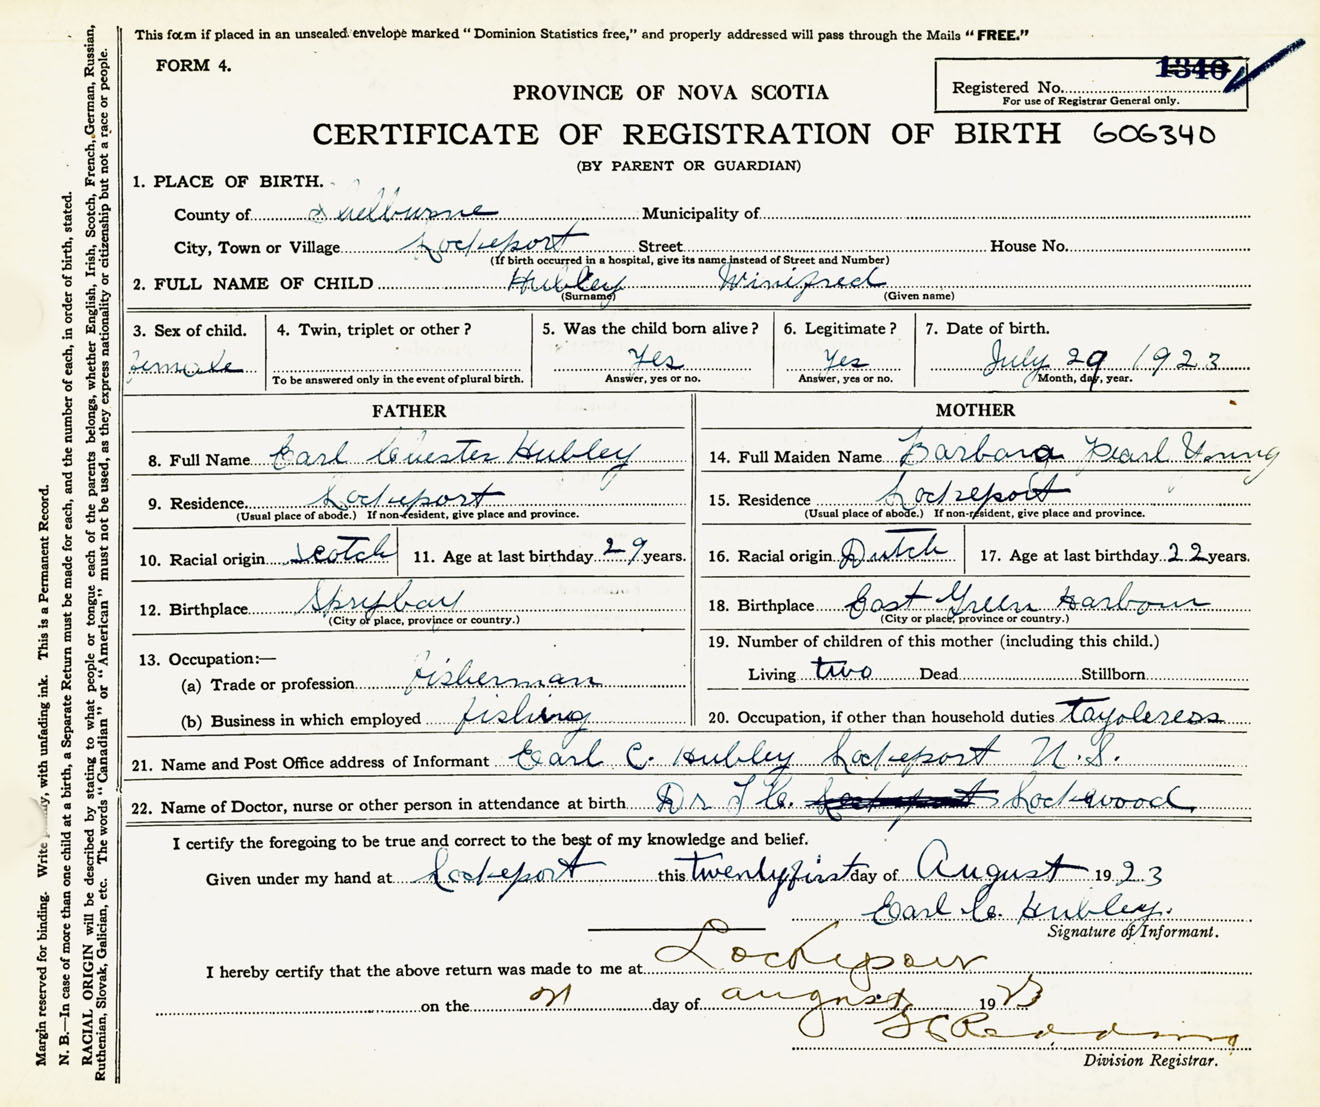 This form if placed in an unsealed envelope marked "Dominion Statistics free," and properly addressed will pass through the Mails "FREE."
FORM 4.
1340
Registered No.
For use of Registrar General only.
PROVINCE OF NOVA SCOTIA
CERTIFICATE OF REGISTRATION OF BIRTH 606340
(BY PARENT OR GUARDIAN)
1. PLACE OF BIRTH.
County of Shelburne Municipality of
City, Town or Village Lockeport Street House No.
(If birth occurred in a hospital, give its name instead of Street and Number)
2. FULL NAME OF CHILD Hubley Winifred
(Surname) (Given name)
3. Sex of child. 4. Twin, triplet or other? 5. Was the child born alive? 6. Legitimate? 7. Date of birth.
female Yes Yes July 29 1923
To be answered only in the event of plural birth. Answer, yes or no. Answer, yes or no. Month, day, year.
FATHER MOTHER
8. Full Name Earl Chester Hubley 14. Full Maiden Name Barbara Pearl Young
9. Residence Lockeport 15. Residence Lockeport
(Usual place of abode.) If non-resident, give place and province. (Usual place of abode.) If non-resident, give place and province.
10. Racial origin Scotch 11. Age at last birthday 29 years. 16. Racial origin Dutch 17. Age at last birthday 22 years.
12. Birthplace Sprybay 18. Birthplace East Green Harbour
(City or place, province or country.) (City or place, province or country.)
13. Occupation:— 19. Number of children of this mother (including this child.)
(a) Trade or profession fisherman Living two Dead Stillborn
(b) Business in which employed fishing 20. Occupation, if other than household duties tayoleress
21. Name and Post Office address of Informant Earl C. Hubley Lockeport N.S.
22. Name of Doctor, nurse or other person in attendance at birth Dr Lockwood
I certify the foregoing to be true and correct to the best of my knowledge and belief.
Given under my hand at Lockeport this twentyfirst day of August 1923
Earl C. Hubley.
Signature of Informant.
I hereby certify that the above return was made to me at Lockeport
on the 21 day of august 1923
Redding
Division Registrar.
Margin reserved for binding. Write with unfading ink. This is a Permanent Record.
N. B.—In case of more than one child at a birth, a Separate Return must be made for each, and the number of each, in order of birth, stated.
RACIAL ORIGIN will be described by stating to what people or tongue each of the parents belongs, whether English, Irish, Scotch, French, German, Russian,
Ruthenian, Slovak, Galician, etc. The words "Canadian" or "American" must not be used, as they express nationality or citizenship but not a race or people.